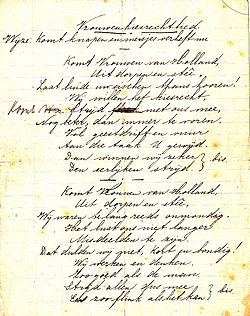 Vrouwenkiesrechtlied.
Wijze: Komt knapen en meisjes
Komt Vrouwen van Holland,
Uit dorpen en stee
Laat luide uw thans hooren.
Wij willen het kiesrecht,
Komt strijd met ons mee,
Nog beter, dan immer te voren.
Vol geestdrift en vuur
Aan die taak U gewijd.
Dan winnen wij zeker } bis.
Den eerlijken strijd.
Komt Vrouwen van Holland,
Uit dorpen en stee,
Wij waren te lang reeds onmondig.
Het lust ons niet langer
Misdeelden te zijn.
Dat dulden wij niet, kort en bondig!
Wij werken en denken,
Zoo goed als de man.
Strijd allen dus mee } bis
zoo flink als het kan!